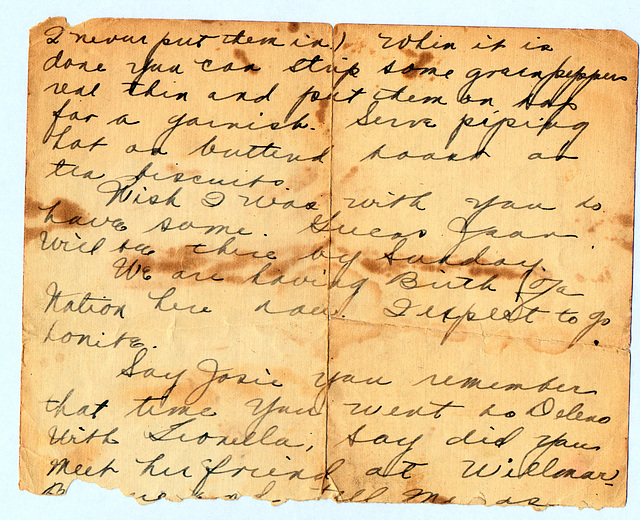 I never put them in) When it is
done you can strip some green peppers
real thin and put them on top
for a garnish. Serve piping
hot on buttered toast or
tea biscuits
Wish I was with you to
have some. Guess Joan
will be there by Sunday.
We are having Birth of a
Nation here now. I expect to go
tonite.
Say Josie you remember
that time you went to Delano
with Leonella, say did you
meet her friend at Willmar
tell me as